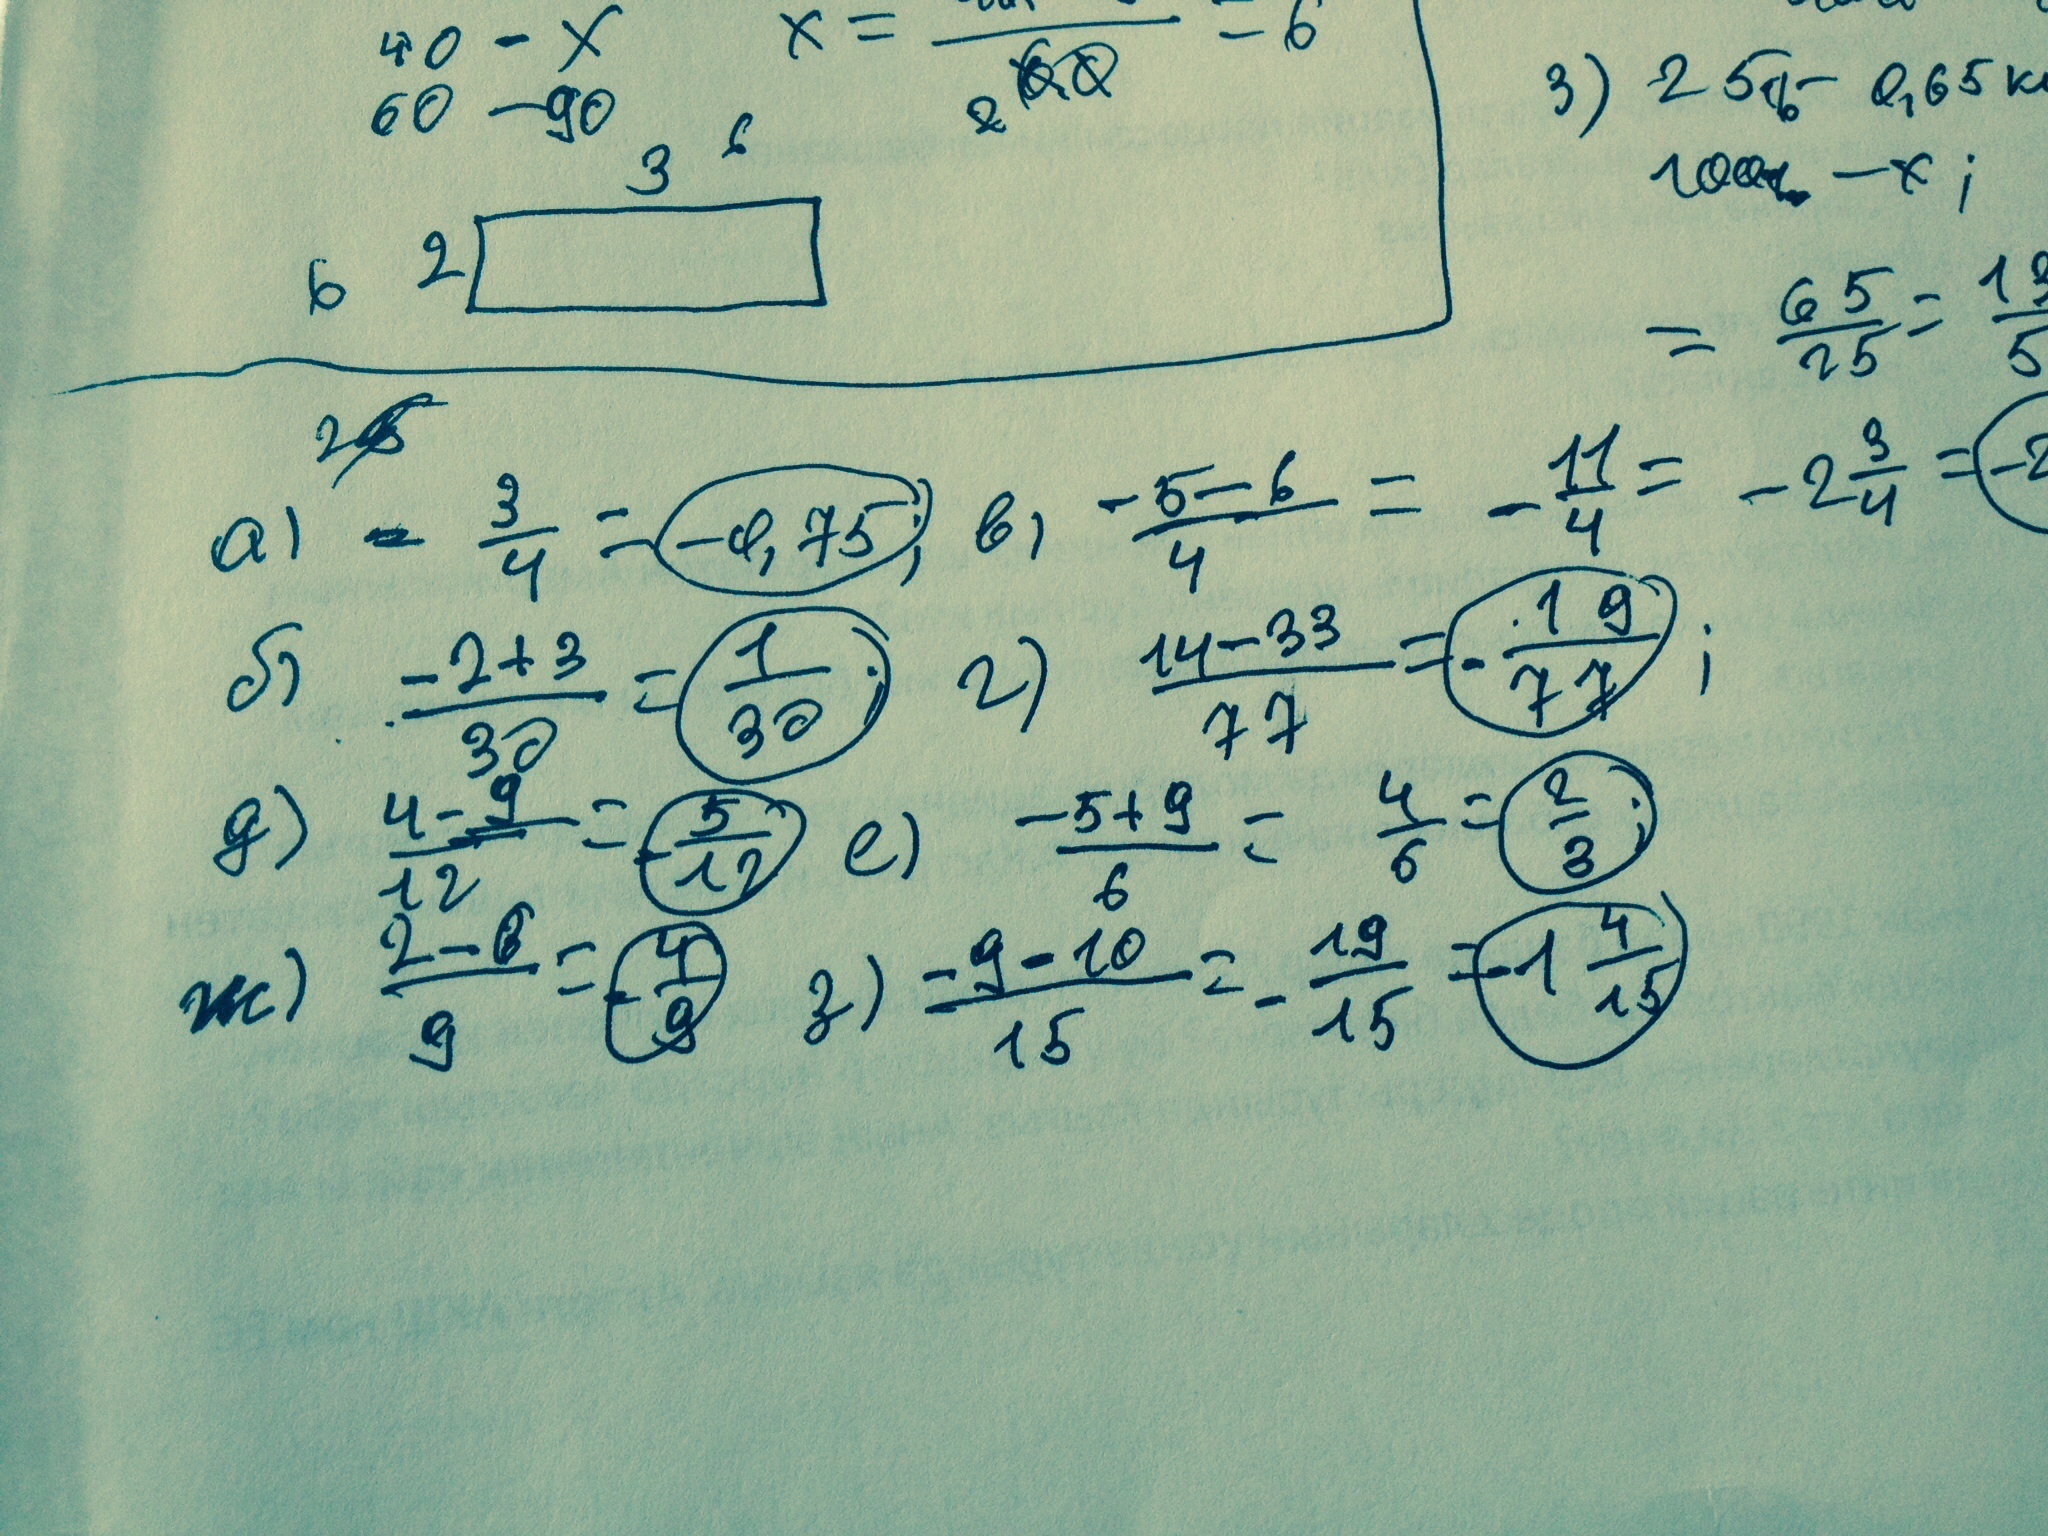 40 - x x = = 6
60 - 90 2
3 6
6 2
3) 25 - 0,65
100 - x ;
= 65/25 = 13/5
а) - 3/4 = -0,75; в) (-5-6)/4 = - 11/4 = -2 3/4 = -2
б) (-2+3)/30 = 1/30; г) (14-33)/77 = - 19/77;
д) (4-9)/12 = - 5/12; е) (-5+9)/6 = 4/6 = 2/3;
ж) (2-6)/9 = - 4/9 з) (-9-10)/15 = - 19/15 = -1 4/15